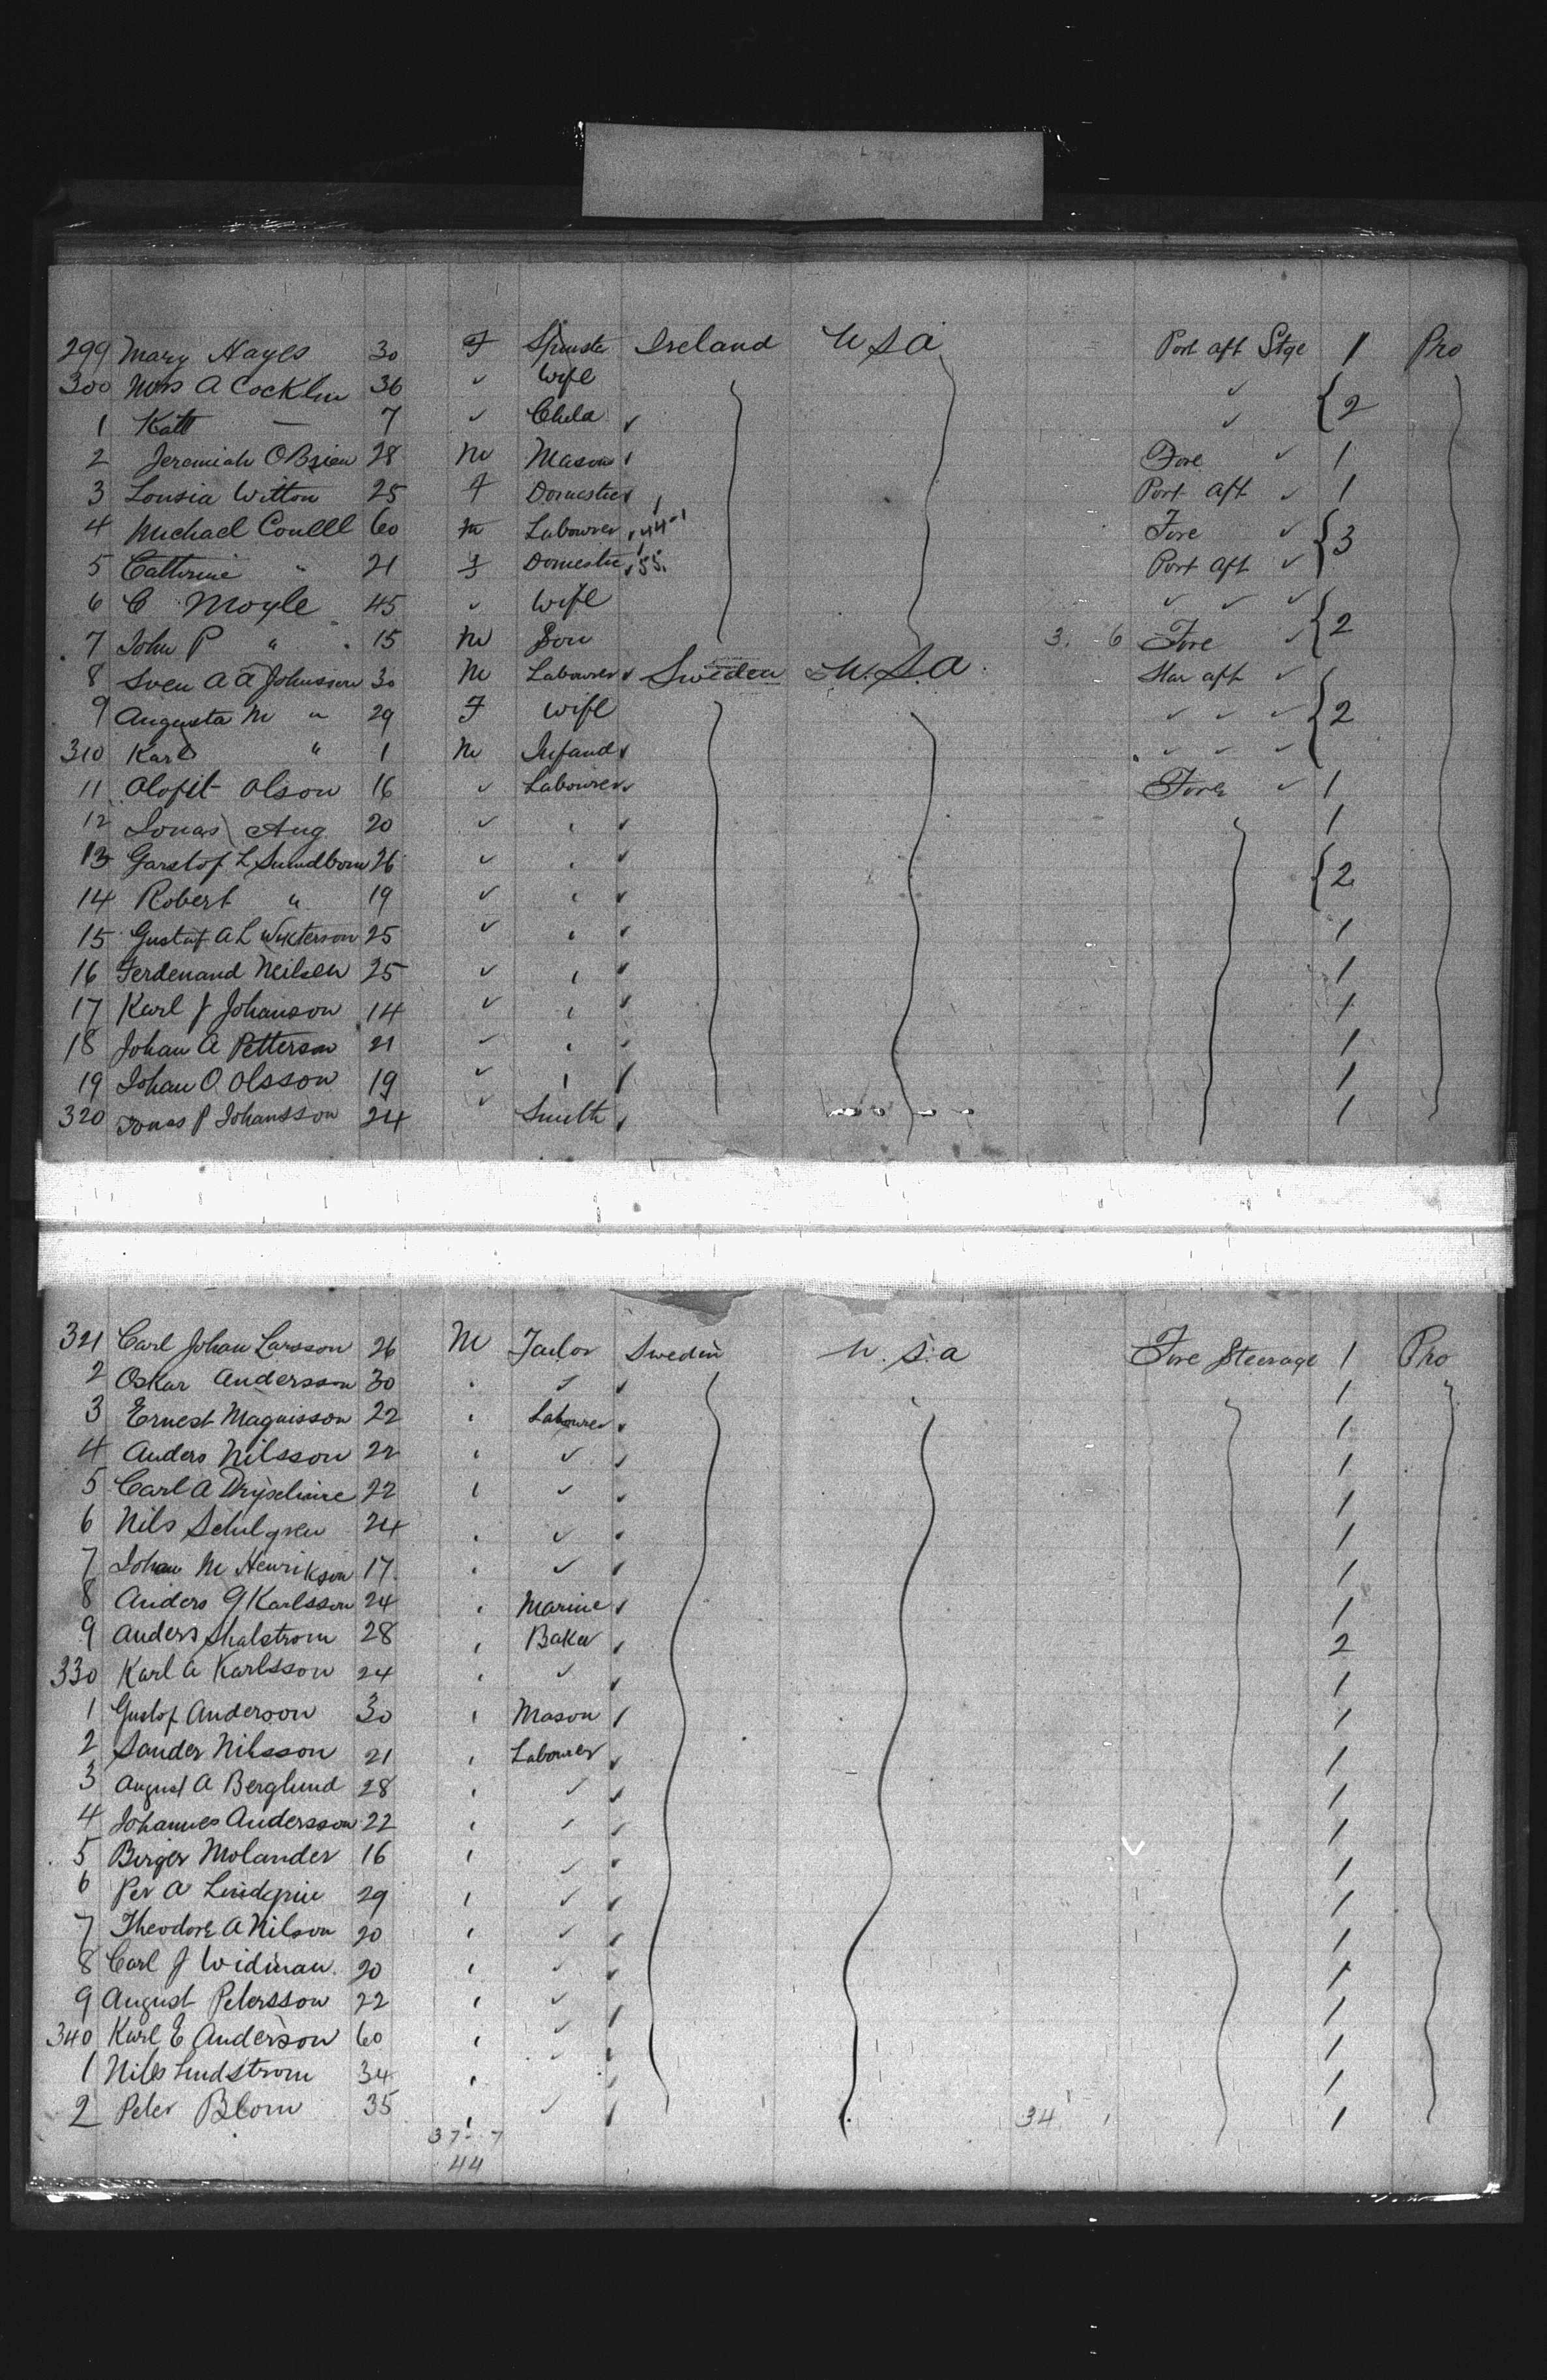 299 Mary Hayes 30 F Spinster Ireland U S A Port aft Stge 1 Pro
300 Mrs A Cocklin 36 ✓ Wife ✓ { 2
1 Katt — 7 ✓ Child ✓ ✓
2 Jeremiah OBrien 28 M Mason Fore ✓ 1
3 Lousia Witton 25 F Domestic Port aft ✓ 1
4 Michael Conell 60 m Labourer 44 Fore ✓ { 3
5 Catherine " 21 F Domestic 55 Port aft ✓
6 C Moyle 45 ✓ Wife ✓ ✓ ✓ { 2
7 John P " 15 M Son 3. 6 Fore ✓
8 Sven A A Johnsson 30 M Labourer ✓ Sweden U.S.A. Star aft ✓ { 2
9 Augusta M " 29 F Wife ✓ ✓ ✓
310 Karl " 1 M Infand ✓ ✓ ✓ ✓
11 Olofit Olson 16 ✓ Labourer ✓ Fore ✓ 1
12 Jonas Aug 20 ✓ ✓ 1
13 Garstof L Sundbom 26 ✓ ✓ { 2
14 Robert " 19 ✓ ✓
15 Gustaf A L Wikterson 25 ✓ ✓ 1
16 Ferdenand Neilsen 25 ✓ ✓ 1
17 Karl J Johanson 14 ✓ ✓ 1
18 Johan A Petterson 21 ✓ ✓ 1
19 Johan O Olsson 19 ✓ 1
320 Jonas P Johansson 24 ✓ Smith ✓ 1
321 Carl Johan Larsson 26 M Tailor Sweden U.S.A Fore Steerage 1 Pro
2 Oskar Andersson 30 ✓ ✓ 1
3 Ernest Magnisson 22 Labourer ✓ 1
4 Anders Nilsson 22 ✓ ✓ 1
5 Carl A 22 ✓ ✓ 1
6 Nils 24 ✓ ✓ 1
7 Johan M Henrikson 17 ✓ ✓ 1
8 Anders G Karlsson 24 Marine ✓ 1
9 Anders Shalstrom 28 Baker ✓ 2
330 Karl A Karlsson 24 ✓ ✓ 1
1 Gustof Anderson 30 Mason 1
2 Sander Nilsson 21 Labourer ✓ 1
3 August A Berglund 28 ✓ ✓ 1
4 Johannes Andersson 22 ✓ ✓ 1
5 Birger Molander 16 ✓ ✓ 1
6 Per A 29 ✓ ✓ 1
7 Theodore A Nilson 20 ✓ ✓ 1
8 Carl J Widman 20 ✓ ✓ 1
9 August Petersson 22 ✓ 1
340 Karl E Anderson 60 ✓ 1
1 Nils Lindstrom 34 ✓ 1
2 Peter Blom 35 ✓ 34 1
37 - 7
44